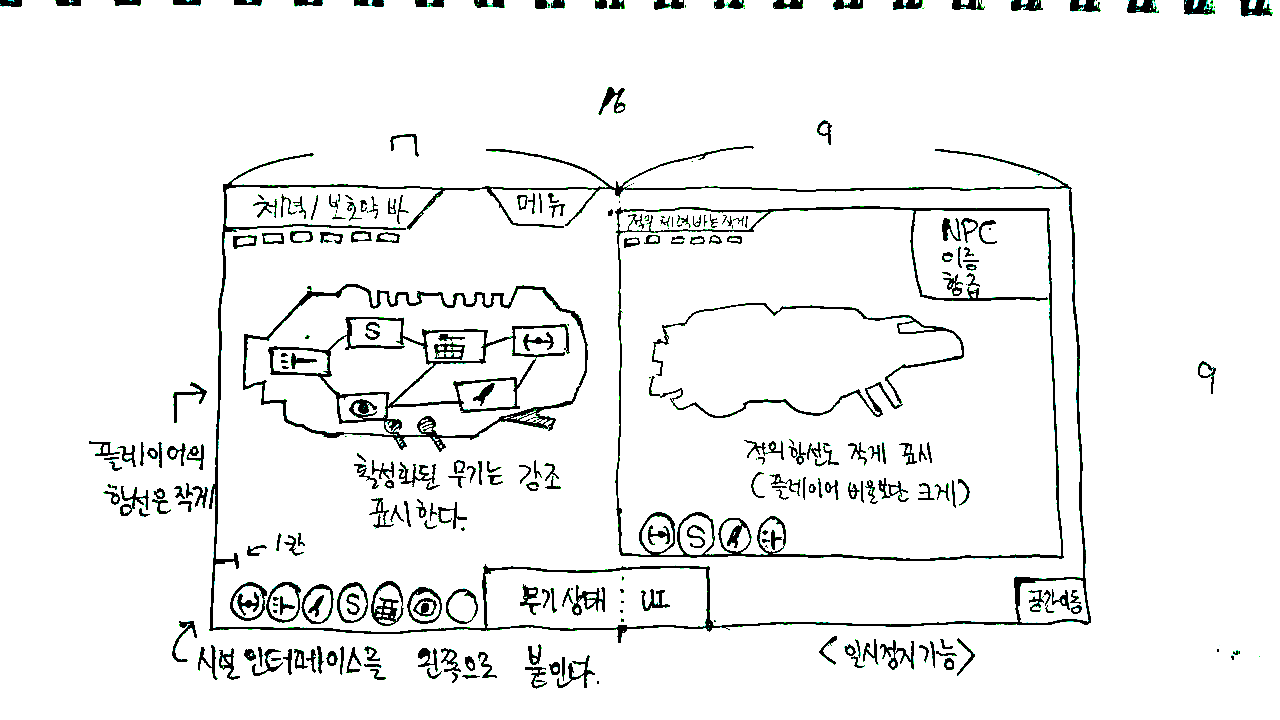 16
7
9
체력/보호막 바
메뉴
적의 체력바는 작게
NPC
이름
함급
S
9
플레이어의
함선은 작게
활성화된 무기는 강조
표시한다.
적의 함선도 작게 표시
(플레이어 비율보단 크게)
1칸
S
S
무기 상태 UI
공간이동
시설 인터페이스를 왼쪽으로 붙인다.
<일시정지 가능>